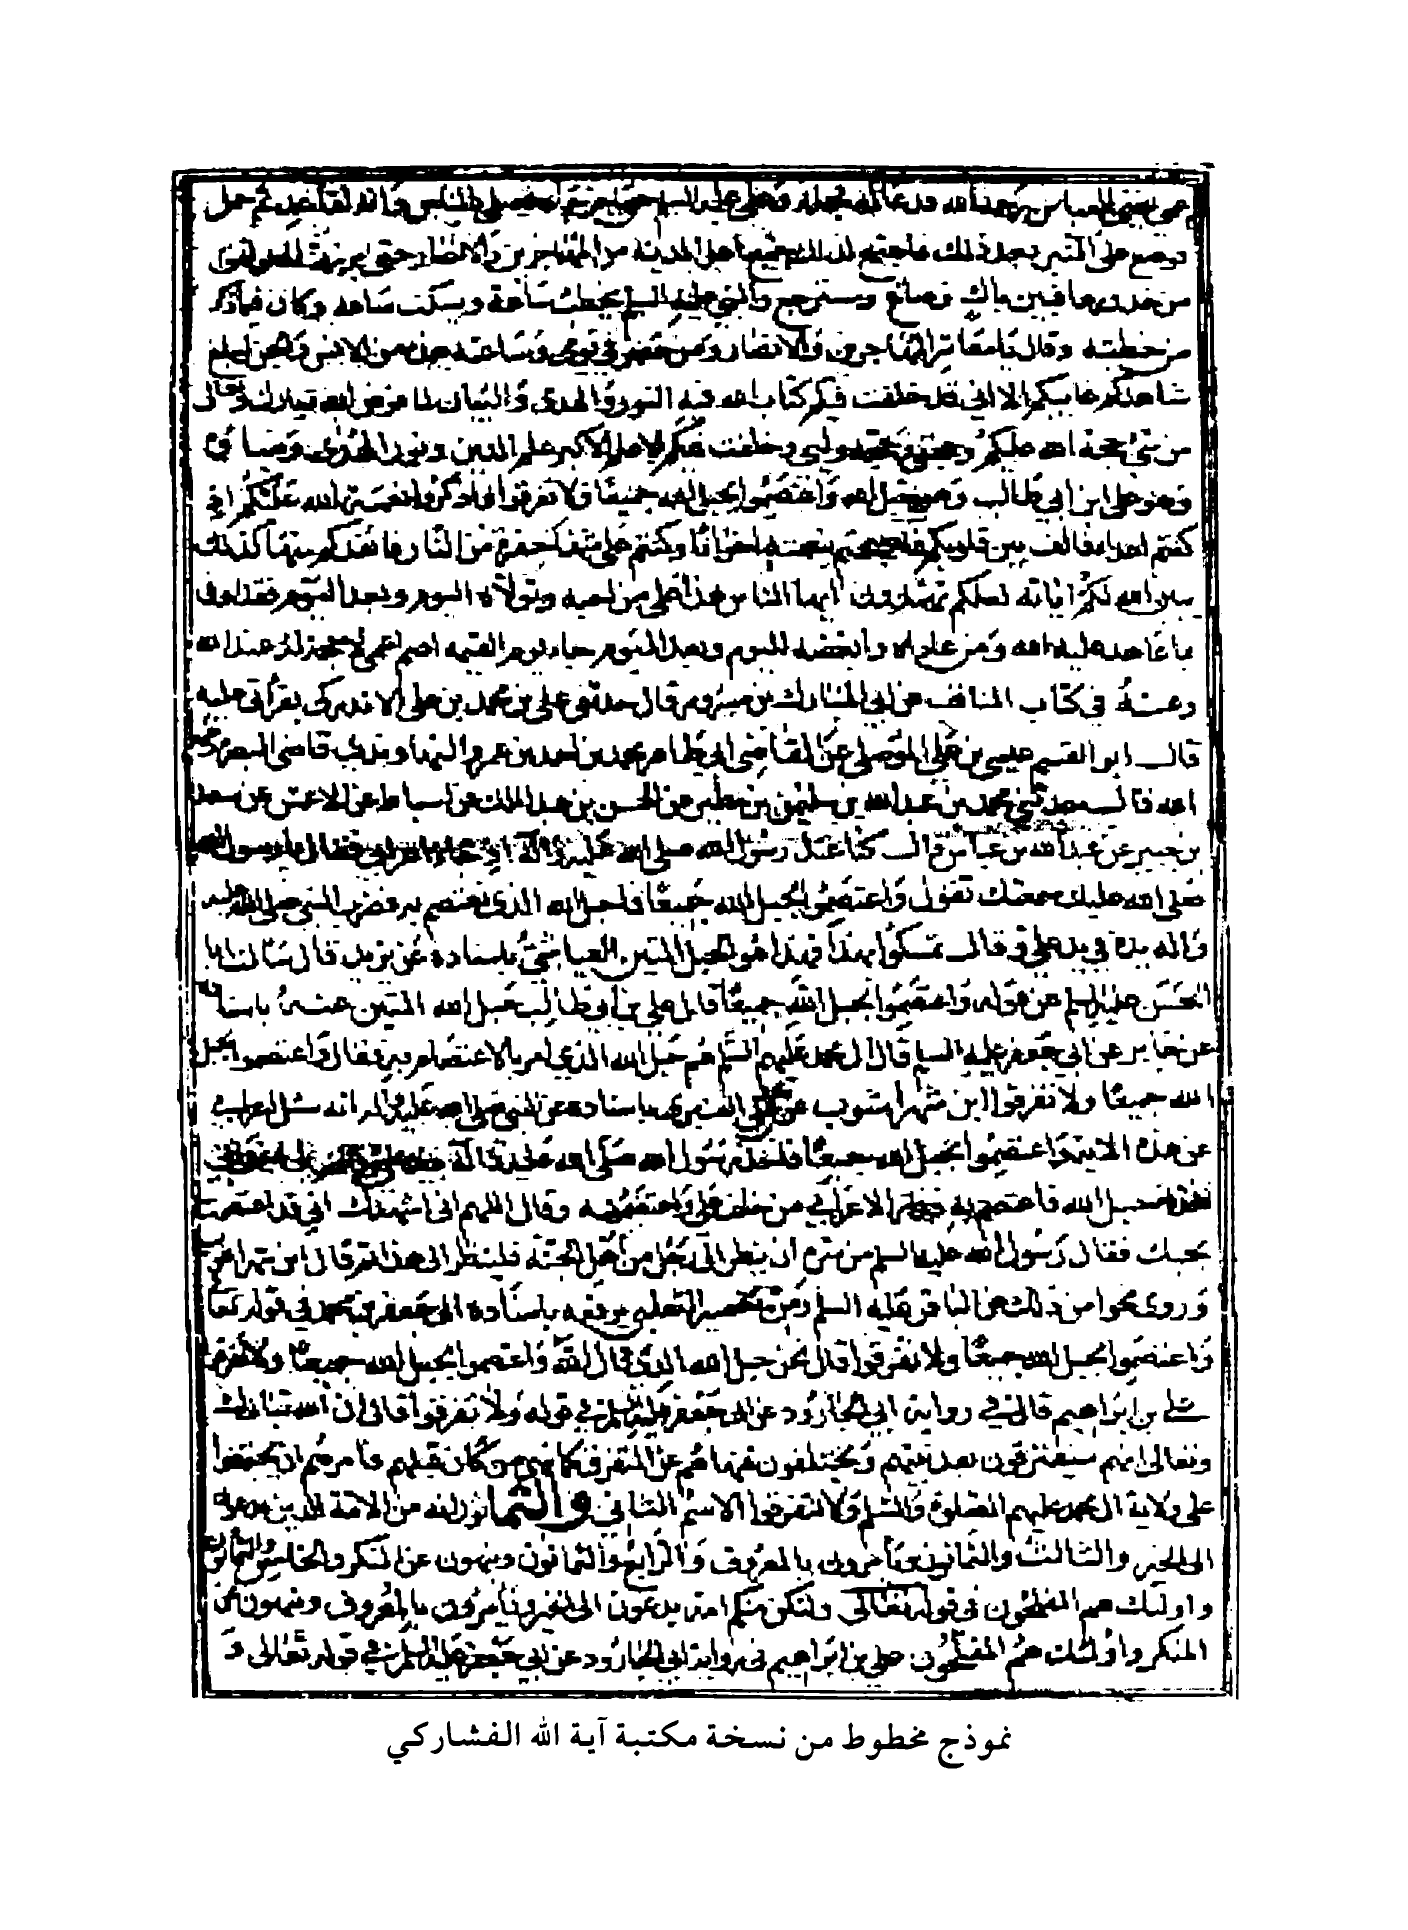 على المنبر بعد ذلك فاجتمع جميع اهل المدينة من المهاجرين والانصار حتى
ويسترجع والنبي عليه السلم يخطب ساعة ويسكت ساعة وكان فما ذكر
من خطبته وقال يا معاشر المهاجرين والانصار ومن حضر في يومي وساعتي هذه من الانس والجن ليبلغ
شاهدكم غايبكم الا اني قد خلفت فيكم كتاب الله فيه النور والهدى والبيان لما فرض الله تبارك وتعالى
من شيء حجة الله عليكم وحجتي وحجة وليي وخلفت فيكم العلم الاكبر علم الدين ونور الهدى وضياه
وهو علي ابن ابي طالب وهو حبل الله واعتصموا بحبل الله جميعا ولا تفرقوا واذكروا نعمت الله عليكم اذ
كنتم اعداء فالف بين قلوبكم فاصبحتم بنعمته اخوانا وكنتم على شفا حفرة من النار فانقذكم منها كذلك
يبين الله لكم اياته لعلكم تهتدون ايها الناس هذا علي من احبه وتولاه اليوم وبعد اليوم فقد اوفى
بما عاهد عليه الله ومن عاداه وابغضه اليوم وبعد اليوم جاء يوم القيمة اصم اعمى لا حجة له عند الله
وعنه في كتاب المناقب عن ابي المبارك بن مسرور قال حدثني علي بن محمد بن علي الاندركي بقرائتي عليه
قال ابو القسم عيسى بن علي الموصلي عن القاضي ابي طاهر محمد بن احمد بن عمرو النهاوندي قاضي البصرة
الله قال حدثني محمد بن عبد الله بن سليمن بن مطير عن الحسن بن عبد الملك عن اسباط عن الاعمش عن سعيد
بن جبير عن عبد الله بن عباس قال كنا عند رسول الله صلى الله عليه واله اذ جاء اعرابي فقال يا رسول الله
صلى الله عليك سمعتك تقول واعتصموا بحبل الله جميعا فما حبل الله الذي نعتصم به فضرب النبي صلى الله عليه
واله يده في يد علي وقال تمسكوا بهذا فهذا هو الحبل المتين العياشي باسناده عن يزيد قال سالت ابا
الحسن عليه السلم عن قوله واعتصموا بحبل الله جميعا قال علي بن ابي طالب حبل الله المتين عنه باسناده
عن جابر عن ابي جعفر عليه السلم قال ال محمد عليهم السلم هم حبل الله الذي امر بالاعتصام به فقال واعتصموا بحبل
الله جميعا ولا تفرقوا ابن شهراشوب عن باسناده عن النبي صلى الله عليه واله انه سئل اعرابي
عن هذه الاية واعتصموا بحبل الله جميعا فاخذ رسول الله صلى الله عليه واله
حبل الله فاعتصم به فدار الاعرابي من خلف علي واحتضنه وقال اللهم اني اشهدك اني قد اعتصمت
بحبلك فقال رسول الله عليه السلم من سره ان ينظر الى رجل من اهل الجنة فلينظر الى هذا ثم قال ابن شهراشوب
وروى نحوا من ذلك عن الباقر عليه السلم ومن تفسير الثعلبي يرفعه باسناده الى جعفر بن محمد في قوله تعالى
واعتصموا بحبل الله جميعا ولا تفرقوا قال نحن حبل الله الذي قال الله واعتصموا بحبل الله جميعا ولا تفرقوا
علي بن ابراهيم قال في رواية ابي الجارود عن ابي جعفر عليه السلم في قوله ولا تفرقوا قال ان الله تبارك
وتعالى انهم سيفترقون بعد نبيهم ويختلفون فنهاهم عن التفرق كما نهى من كان قبلهم فامرهم ان يجتمعوا
على ولاية ال محمد عليهم الصلوة والسلم ولا يتفرقوا الاسم الثاني والثمانون انه من الامة الذين يدعون
الى الخير والثالث والثمانون ويامرون بالمعروف والرابع والثمانون وينهون عن المنكر والخامس والثمانون
واولئك هم المفلحون في قوله تعالى ولتكن منكم امة يدعون الى الخير ويامرون بالمعروف وينهون عن
المنكر واولئك هم المفلحون علي بن ابراهيم في رواية ابي الجارود عن ابي جعفر عليه السلم في قوله تعالى و
نموذج مخطوط من نسخة مكتبة آية الله الفشاركي